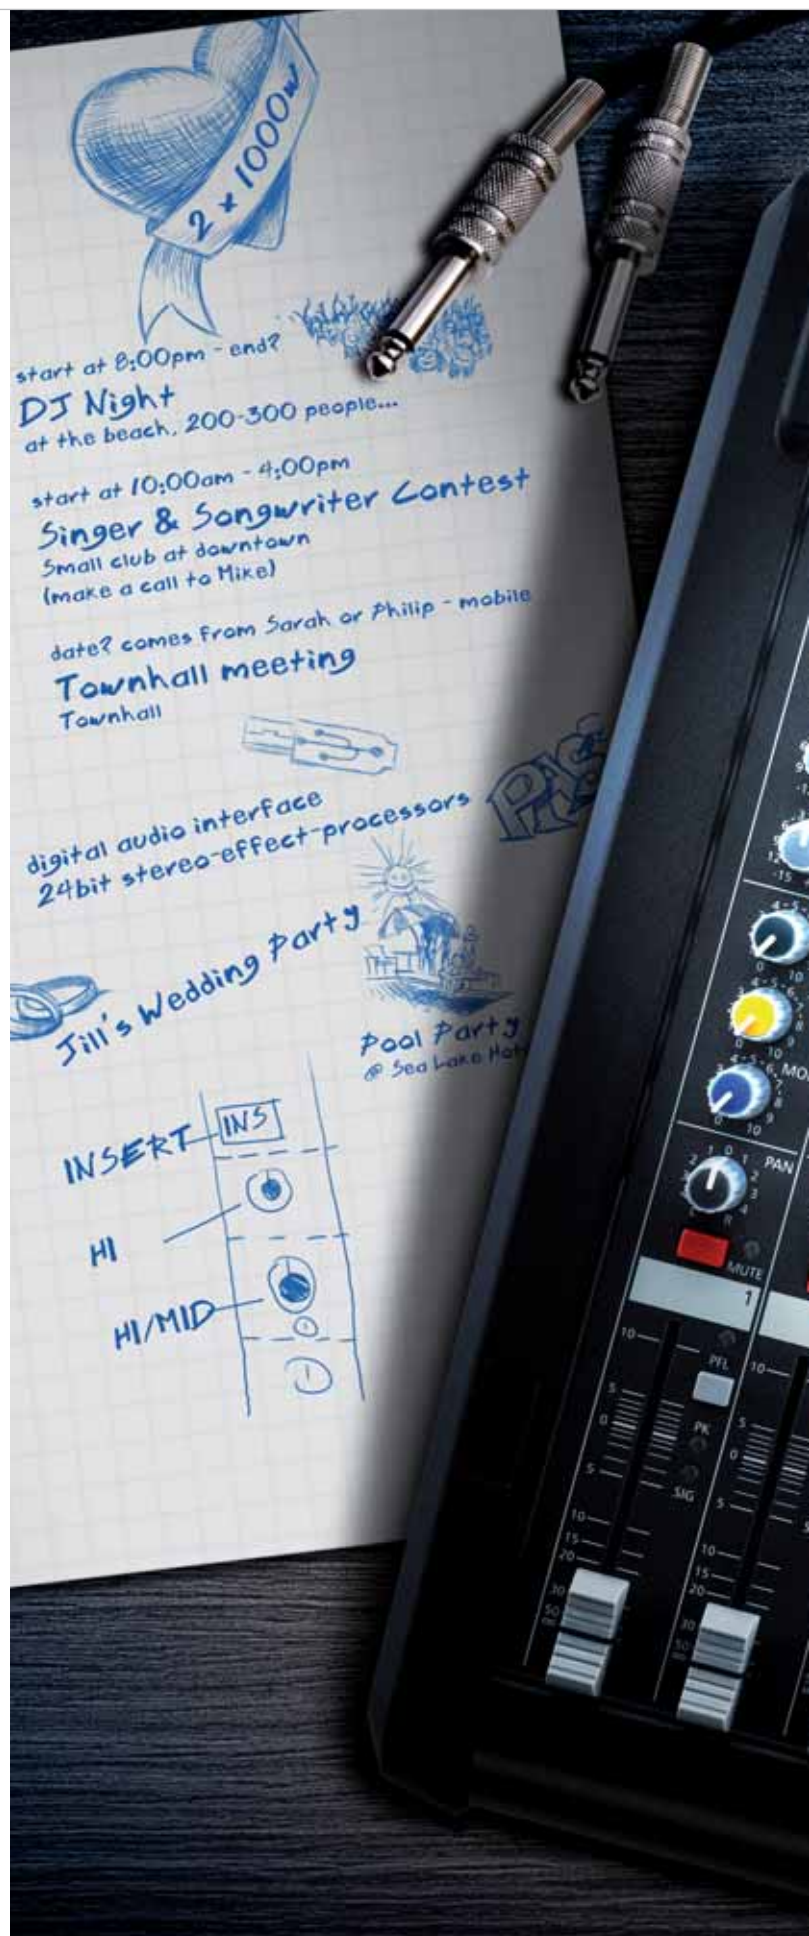 2 x 1000w
start at 8:00pm - end?
DJ Night
at the beach, 200-300 people...
start at 10:00am - 4:00pm
Singer & Songwriter Contest
Small club at downtown
(make a call to Mike)
date? comes from Sarah or Philip - mobile
Townhall meeting
Townhall
digital audio interface
24bit stereo-effect-processors
Jill's Wedding Party
Pool Party
@ Sea Lake
INSERT
INS
HI
HI/MID
PAN
L R
MUTE
1
PFL
PK
SIG
10
5
0
5
10
15
20
30
50
∞